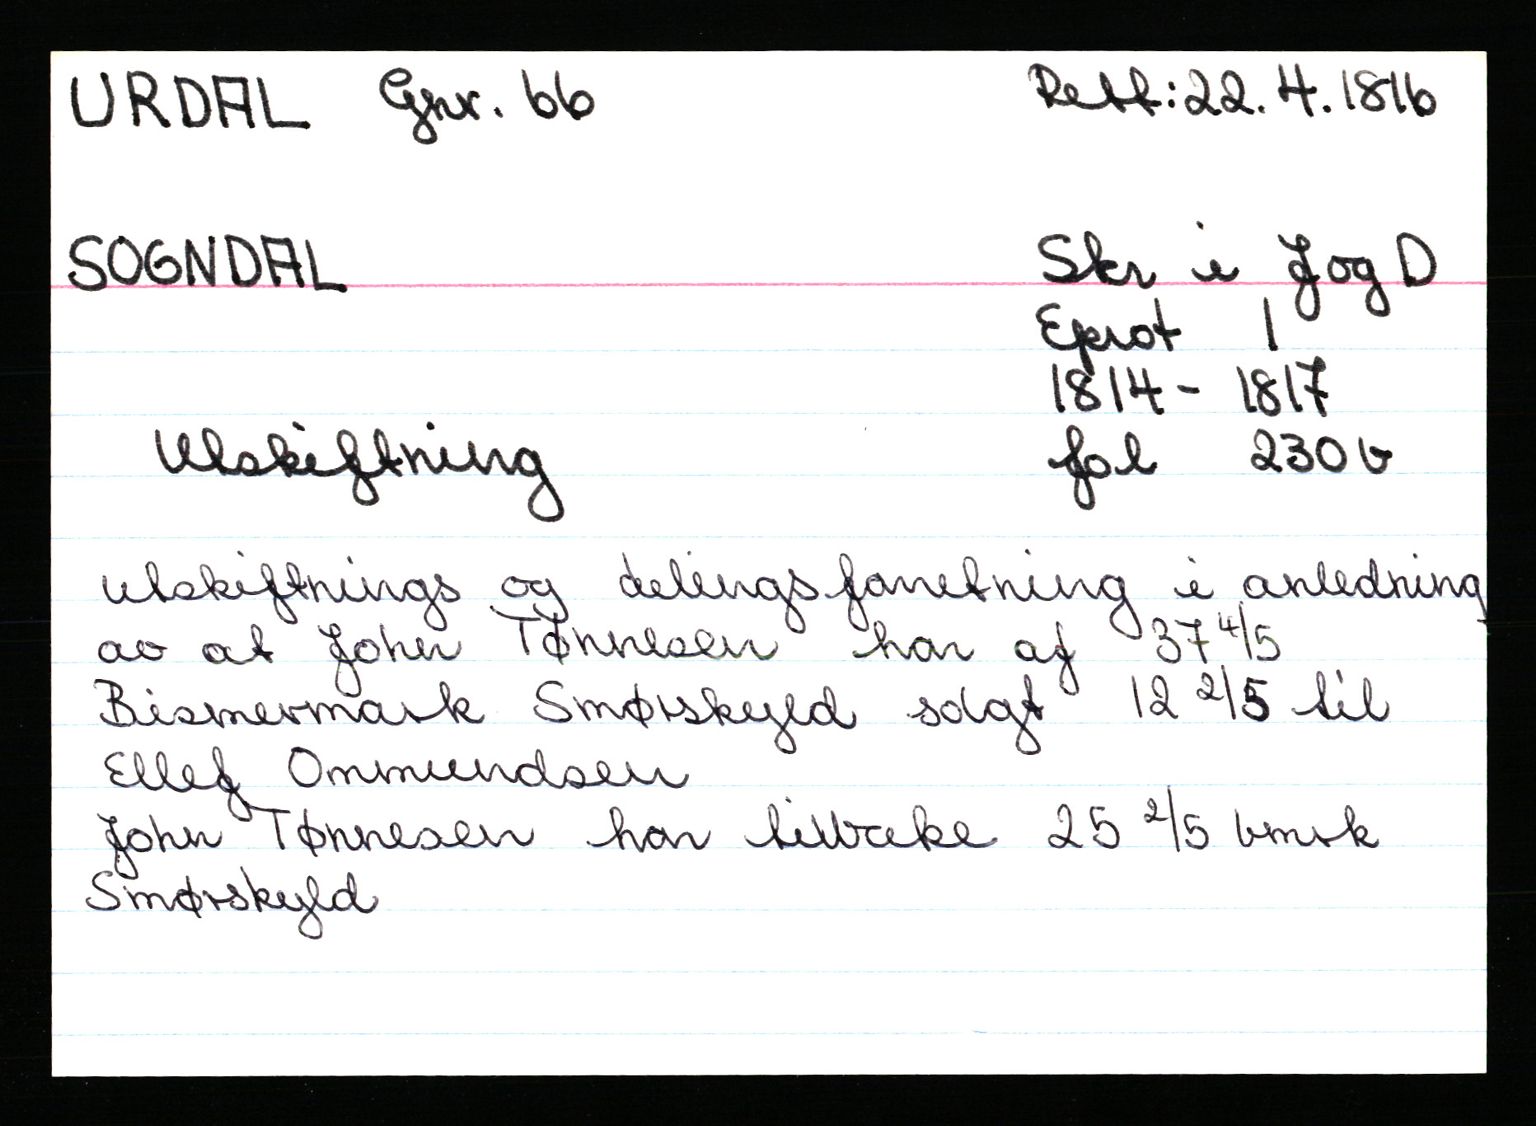 URDAL Gnr. 66 Rett: 22.4.1816
SOGNDAL Skr i J og D
Eprot 1
1814 - 1817
Utskiftning fol 230 b
utskiftnings og delingsforretning i anledning
av at John Tønnesen har af 37 4/5
Bismermark Smørskyld solgt 12 2/5 til
Ellef Ommundsen
John Tønnesen har tilbake 25 2/5 bmrk
Smørskyld